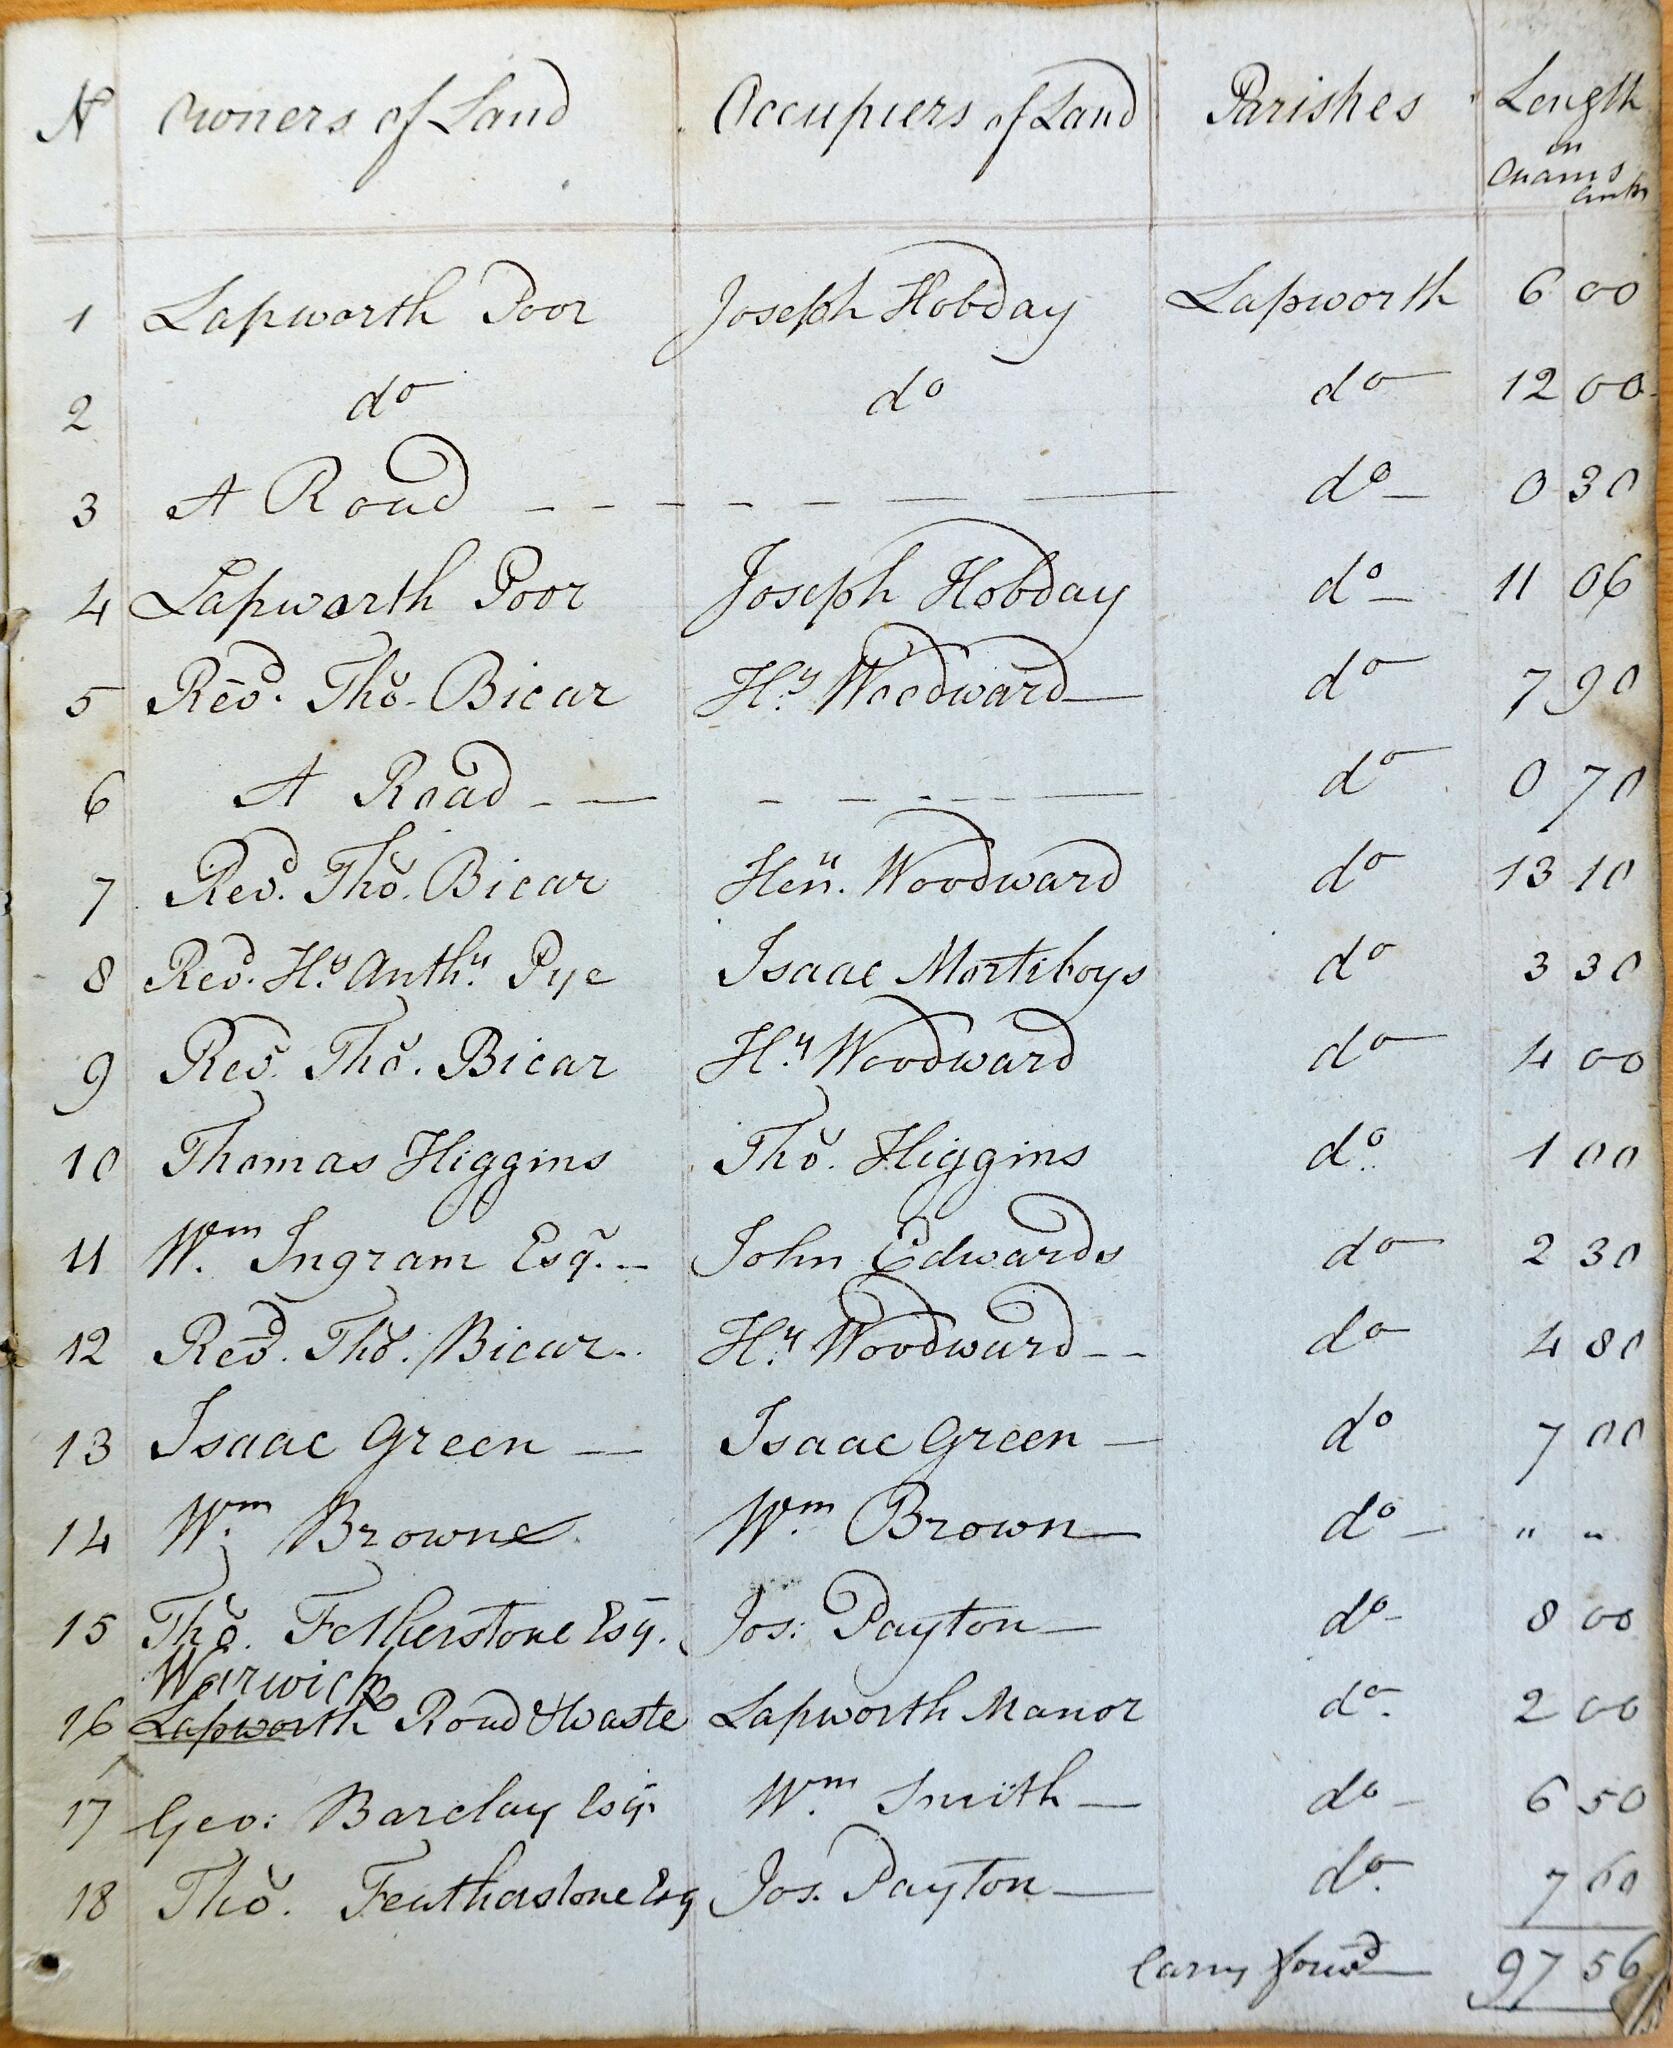 No Owners of Land Occupiers of Land Parishes Length
in
Chains
Links
1 Lapworth Poor Joseph Hobday Lapworth 6 00
2 do do do 12 00
3 A Road do 0 30
4 Lapworth Poor Joseph Hobday do 11 06
5 Revd. Thos. Bicar Hy. Woodward do 7 90
6 A Road do 0 70
7 Revd. Thos. Bicar Heny. Woodward do 13 10
8 Revd. Hy. Anthy. Pye Isaac Mortiboys do 3 30
9 Revd. Thos. Bicar Hy. Woodward do 4 00
10 Thomas Higgins Thos. Higgins do 1 00
11 Wm. Ingram Esqr. John Edwards do 2 30
12 Revd. Thos. Bicar Hy. Woodward do 4 80
13 Isaac Green Isaac Green do 7 00
14 Wm. Browne Wm. Brown do " "
15 Thos. Fetherstone Esqr. Jos: Payton do 8 00
Warwick
16 Lapworth Road & Waste Lapworth Manor do 2 00
17 Geo: Barclay Esqr. Wm. Smith do 6 50
18 Thos. Featherstone Esq Jos. Payton do 7 60
Carry forwd 97 56